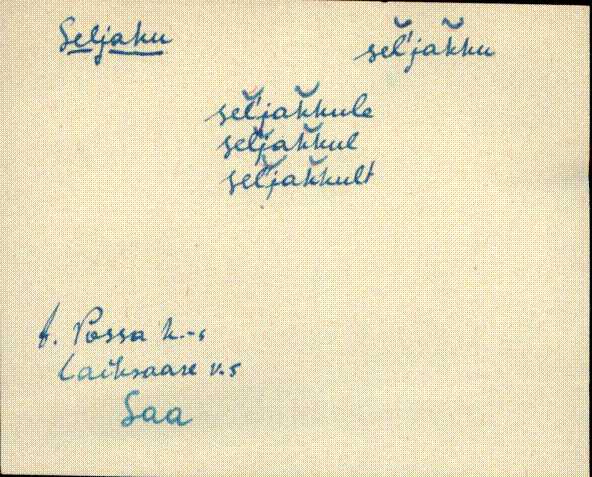 Seljaku sel̆'jak̆ku
sel̆'jak̆kule
sel̆'jak̆kul
sel̆'jak̆kult
t. Possa k.-s
Laiksaare v.s
Saa